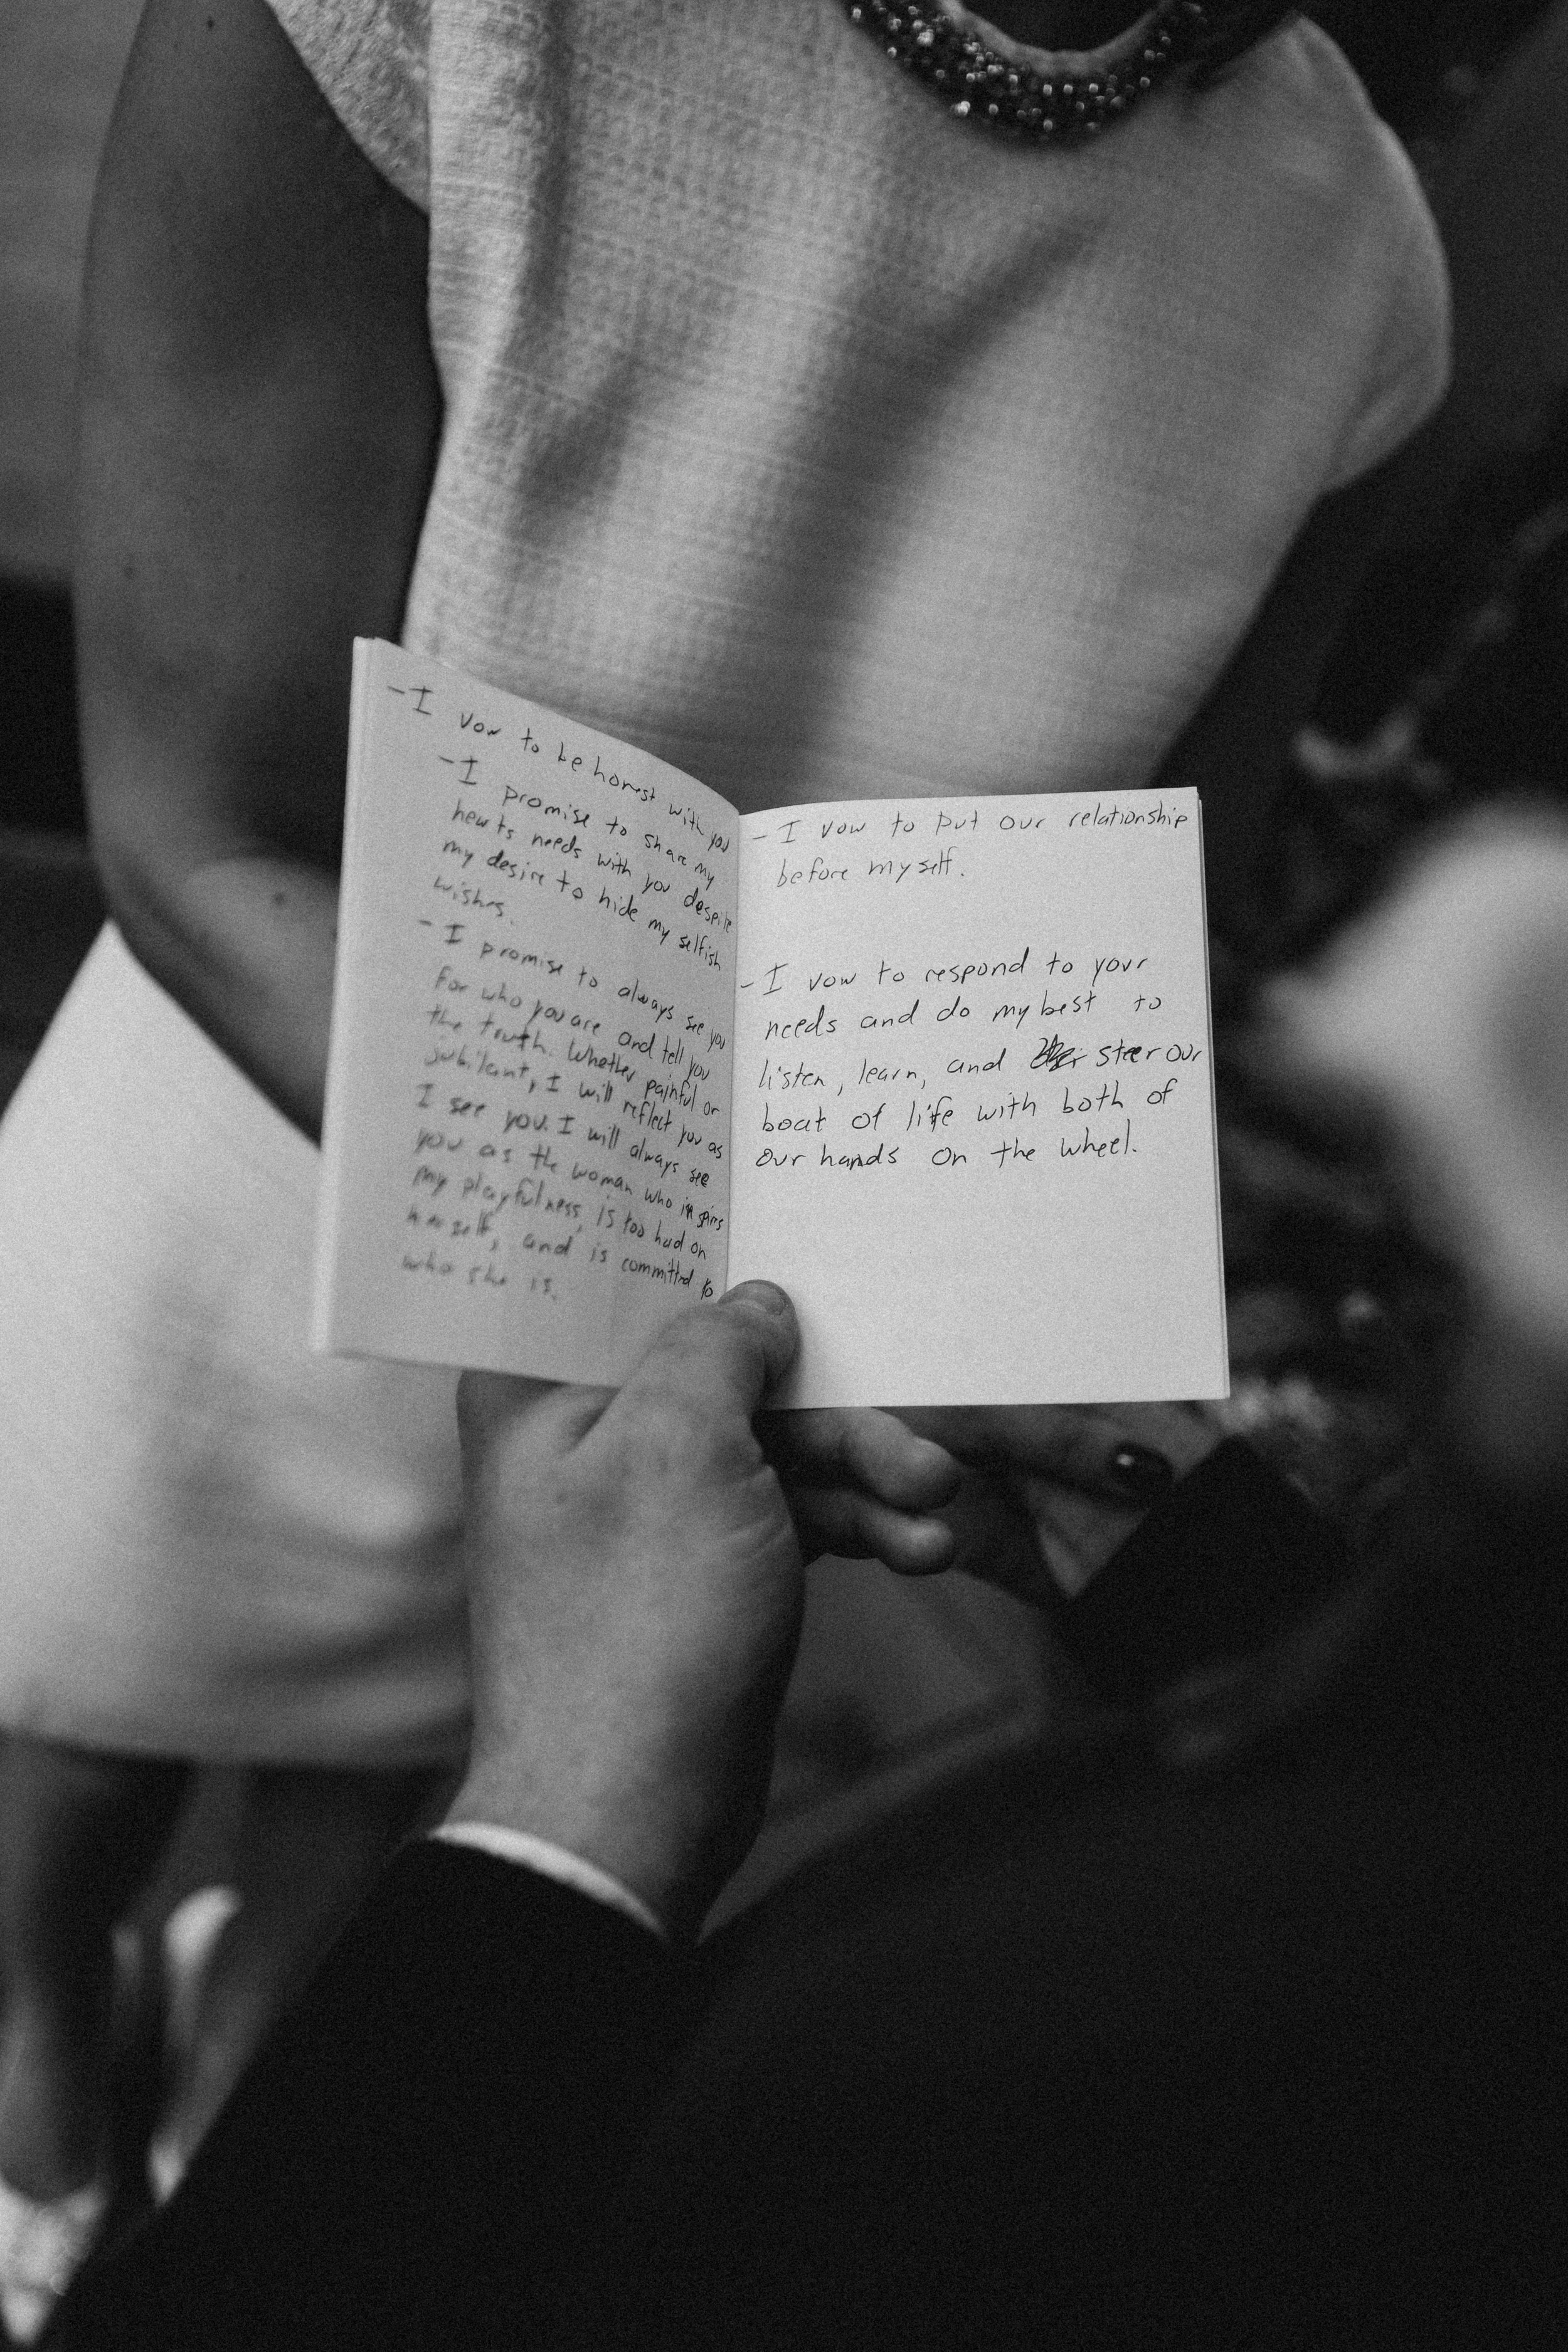 - I vow to be honest with you
- I promise to share my
hearts needs with you despite
my desire to hide my selfish
wishes.
- I promise to always see you
for who you are and tell you
the truth. Whether painful or
jubilant, I will reflect you as
I see you. I will always see
you as the woman who inspires
my playfulness, is too hard on
herself, and is committed to
who she is.
- I vow to put our relationship
before myself.
- I vow to respond to your
needs and do my best to
listen, learn, and steer our
boat of life with both of
our hands on the wheel.